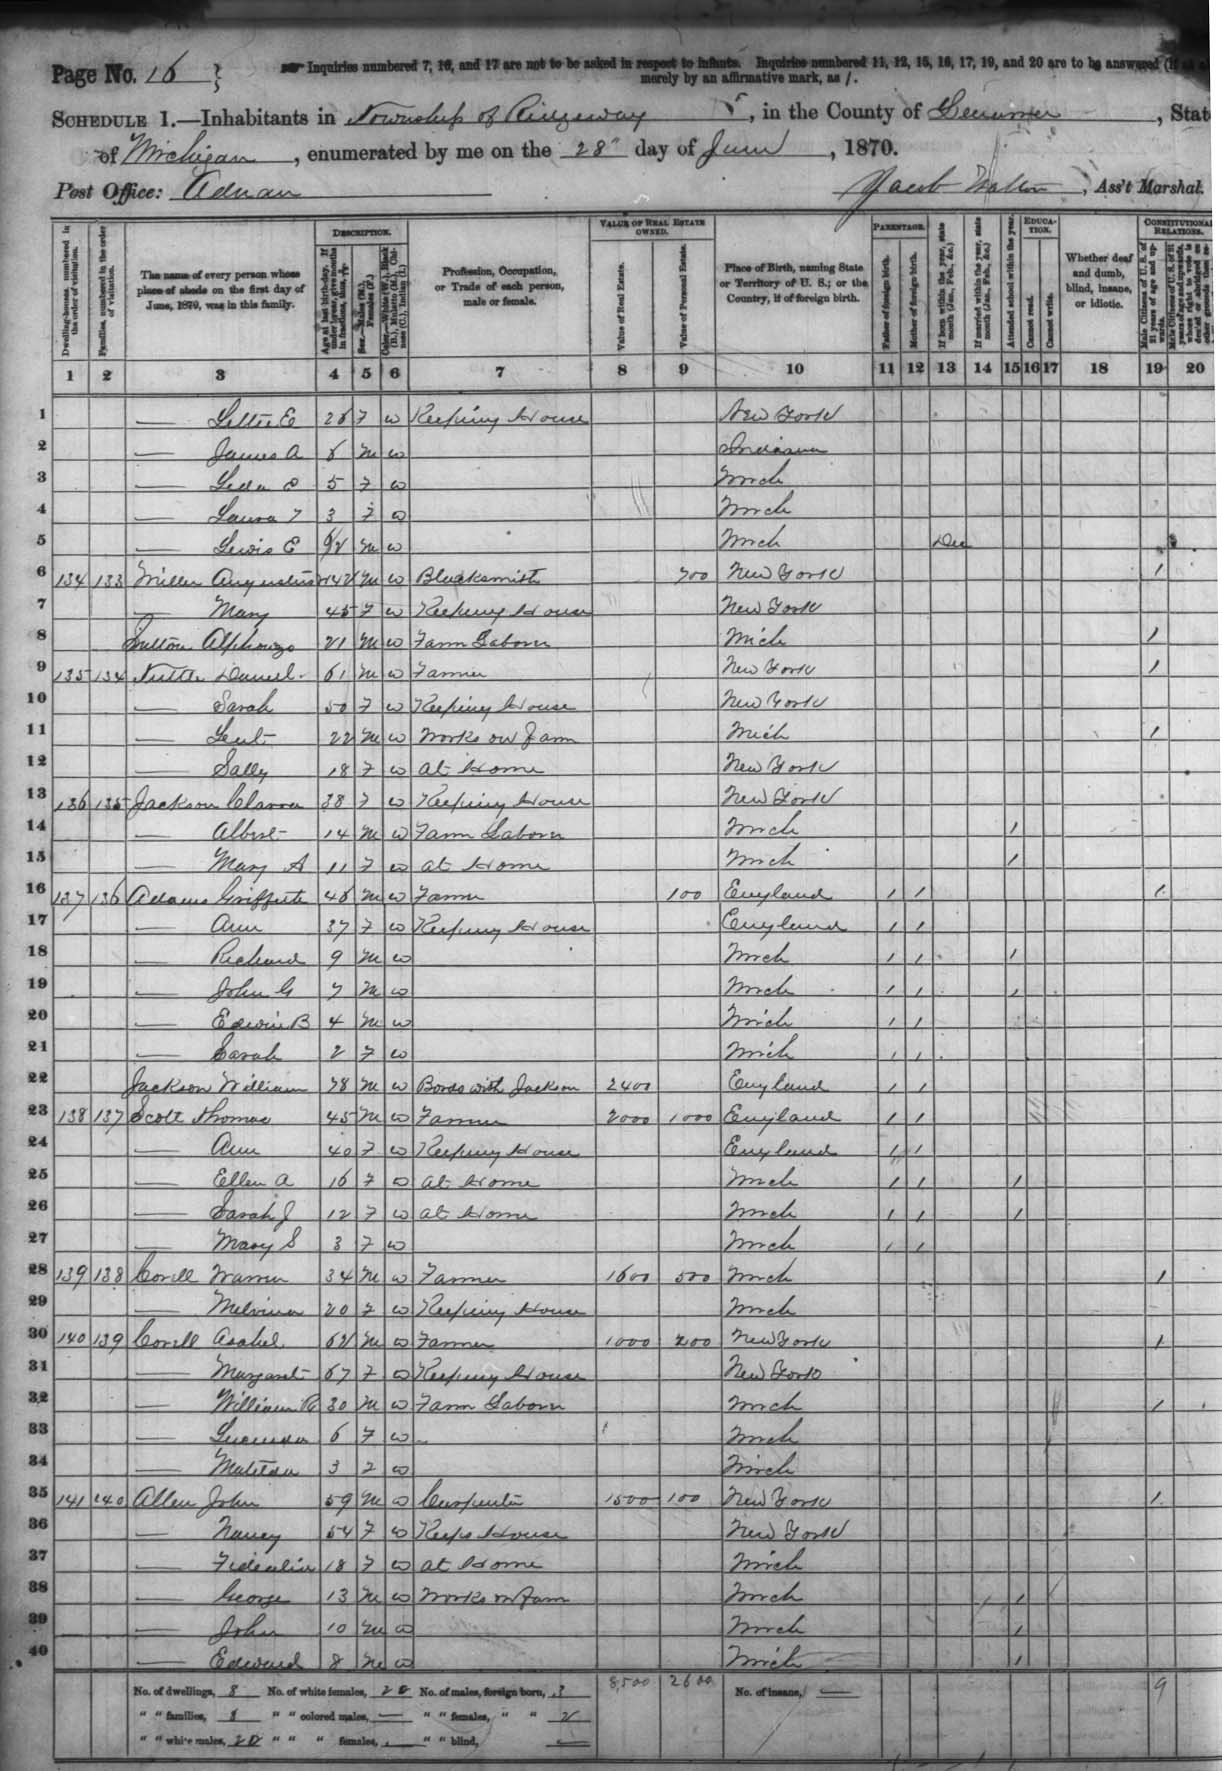 Page No. 16
Inquiries numbered 7, 16, and 17 are not to be asked in respect to infants. Inquiries numbered 11, 12, 15, 16, 17, 19, and 20 are to be answered
merely by an affirmative mark, as /.
SCHEDULE 1.—Inhabitants in Township of Ridgeway, in the County of Lenawee, State
of Michigan, enumerated by me on the 28 day of June, 1870.
Post Office: Adrian
Jacob Walton, Ass't Marshal.
Dwelling-houses, numbered in the order of visitation.
Families, numbered in the order of visitation.
The name of every person whose place of abode on the first day of June, 1870, was in this family.
DESCRIPTION.
Age at last birth-day. If under 1 year, give months in fractions, thus, 3/12
Sex.—Males (M.), Females (F.)
Color.—White (W.), Black (B.), Mulatto (M.), Chinese (C.), Indian (I.)
Profession, Occupation, or Trade of each person, male or female.
VALUE OF REAL ESTATE OWNED.
Value of Real Estate.
Value of Personal Estate.
Place of Birth, naming State or Territory of U. S.; or the Country, if of foreign birth.
PARENTAGE.
Father of foreign birth.
Mother of foreign birth.
If born within the year, state month (Jan., Feb., &c.)
If married within the year, state month (Jan., Feb., &c.)
EDUCATION.
Attended school within the year.
Cannot read.
Cannot write.
Whether deaf and dumb, blind, insane, or idiotic.
CONSTITUTIONAL RELATIONS.
Male Citizens of U. S. of 21 years of age and upwards.
1 2 3 4 5 6 7 8 9 10 11 12 13 14 15 16 17 18 19 20
1 — Lettie E 26 F W Keeping House New York
2 — James A 6 M W Indiana
3 — Leda 5 F W Mich
4 — Laura 3 F W Mich
5 — Lewis E M W Mich Dec
6 134 133 Miller Augustus 42 M W Blacksmith 700 New York /
7 — Mary 45 F W Keeping House New York
8 Sutton Alphonzo 21 M W Farm Laborer Mich /
9 135 134 Daniel 61 M W Farmer New York /
10 — Sarah 50 F W Keeping House New York
11 — 22 M W Works on Farm Mich /
12 — Sally 18 F W At Home New York
13 136 135 Jackson 38 F W Keeping House New York
14 — Albert 14 M W Farm Laborer Mich /
15 — Mary A 11 F W At Home Mich /
16 137 136 Adams Griffith 46 M W Farmer 100 England / / /
17 — Ann 37 F W Keeping House England / /
18 — Richard 9 M W Mich / / /
19 — John G 7 M W Mich / / /
20 — Edwin B 4 M W Mich / /
21 — Sarah 2 F W Mich / /
22 Jackson William 78 M W Bords with Jackson 2400 England / /
23 138 137 Scott Thomas 45 M W Farmer 2000 1000 England / /
24 — Ann 40 F W Keeping House England / /
25 — Ellen A 16 F W At Home Mich / / /
26 — Sarah J 12 F W At Home Mich / / /
27 — Mary S 3 F W Mich / /
28 139 138 Corell Warren 34 M W Farmer 1600 500 Mich /
29 — Melvina 20 F W Keeping House Mich
30 140 139 Corell Asahel 62 M W Farmer 1000 200 New York /
31 — Margaret 67 F W Keeping House New York
32 — William R 30 M W Farm Laborer Mich /
33 — Lucinda 6 F W Mich
34 — Matilda 3 F W Mich
35 141 140 Allen John 59 M W Carpenter 1500 100 New York /
36 — Nancy 54 F W Keeps House New York
37 — Fidealia 18 F W At Home Mich
38 — George 13 M W Works on Farm Mich /
39 — John 10 M W Mich /
40 — Edward 8 M W Mich /
No. of dwellings, 8 No. of white females, 20 No. of males, foreign born, 3 8,500 2600 No. of insane, — 9
" " families, 8 " " colored males, — " " females, " " 2
" " white males, 20 " " " females, — " " blind, —